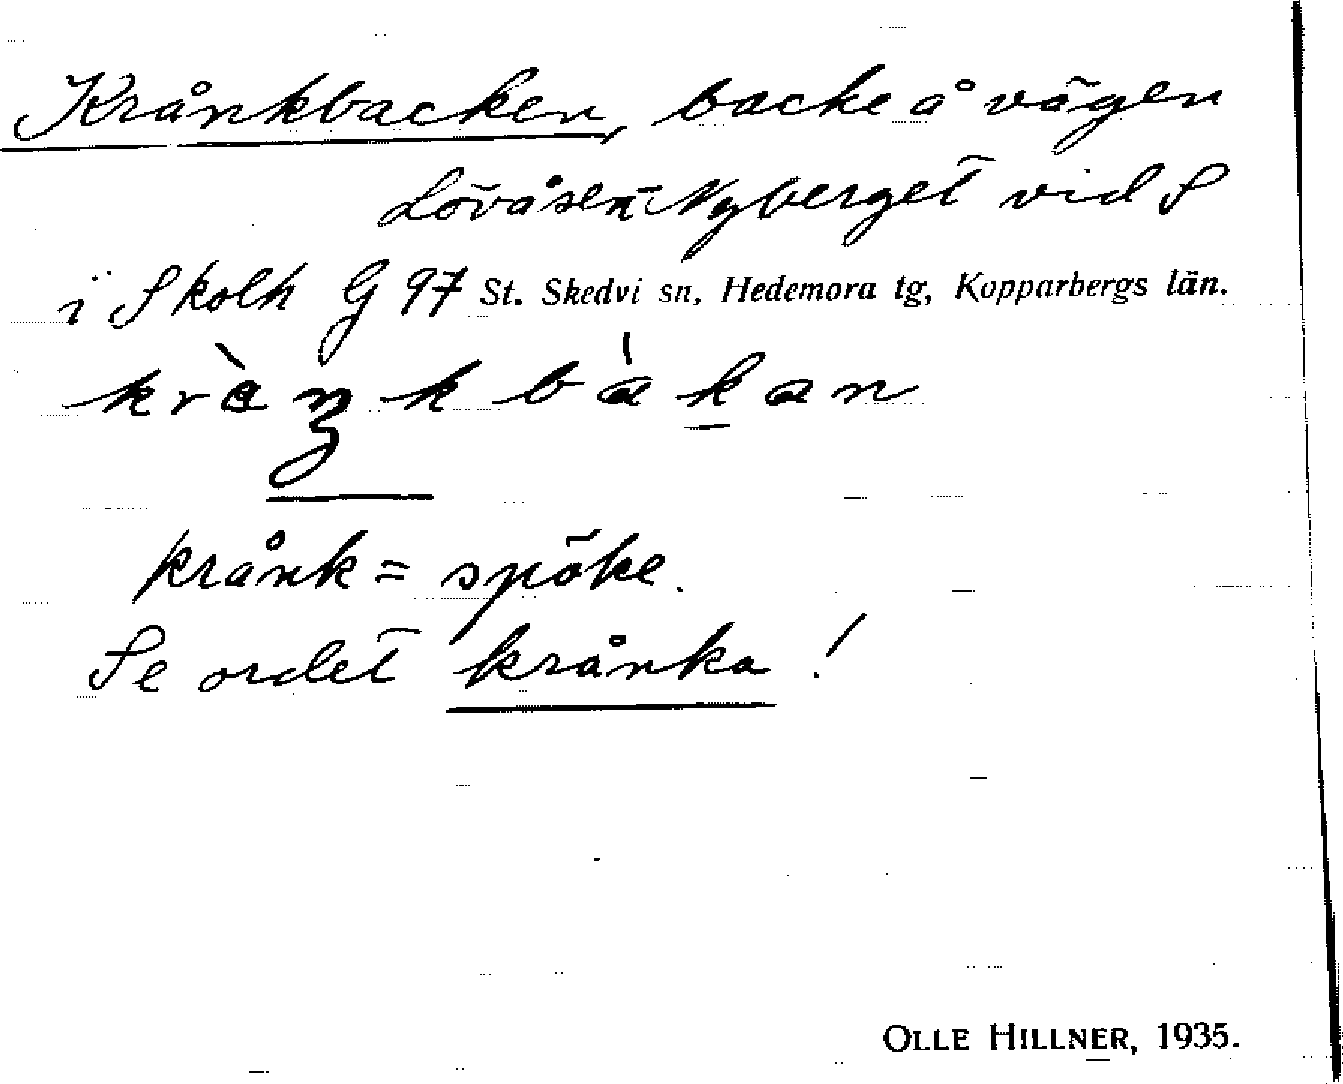 Krånkbacken, backe å vägen
Lövåsen-Nyberget vid S
i Skolh G 97 St. Skedvi sn, Hedemora tg, Kopparbergs län.
krånk = spöke.
Se ordet krånka!
OLLE HILLNER, 1935.